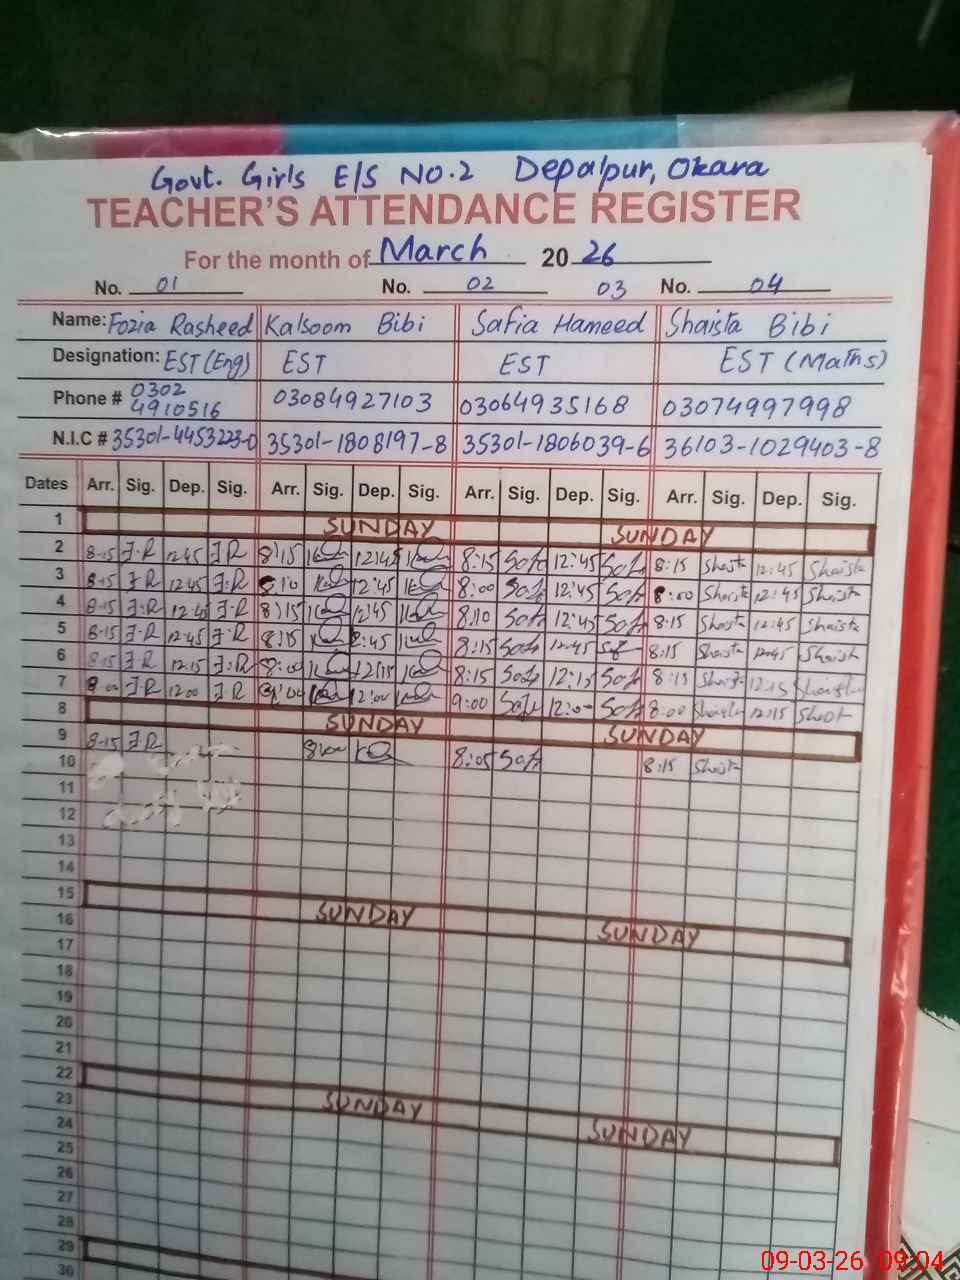 Govt. Girls E/S No.2 Depalpur, Okara
TEACHER'S ATTENDANCE REGISTER
For the month of March 2026
No. 01 No. 02 03 No. 04
Name: Fozia Rasheed Kalsoom Bibi Safia Hameed Shaista Bibi
Designation: EST (Eng) EST EST EST (Maths)
Phone # 0302 4910516 03084927103 03064935168 03074997998
N.I.C # 35301-4453223-0 35301-1808197-8 35301-1806039-6 36103-1029403-8
Dates Arr. Sig. Dep. Sig. Arr. Sig. Dep. Sig. Arr. Sig. Dep. Sig. Arr. Sig. Dep. Sig.
1 SUNDAY SUNDAY
2 8-15 F.R 12.45 F.R 8:15 12:45 8:15 Saf 12:45 Saf 8:15 Shaista 12:45 Shaista
3 8-15 F.R 12.45 F.R 12:45 8:00 Saf 12:45 Saf 8:00 Shaista 12:45 Shaista
4 8-15 F.R 12.45 F.R 8:15 12:45 8:10 Saf 12:45 Saf 8:15 Shaista 12:45 Shaista
5 8-15 F.R 12.45 F.R 8:15 8:15 Saf 12:45 8:15 Shaista 12:45 Shaista
6 8-15 F.R 12.15 F.R 8:00 12:15 8:15 Saf 12:15 Saf 8:15 Shaista 12:15 Shaista
7 F.R 12.00 F.R 12:00 9:00 Saf Saf 8:00 Shaista 12:15
8 SUNDAY SUNDAY
9 8-15 F.R 8:00 8:05 Saf 8:15 Shaista
10
11
12
13
14
15 SUNDAY
16 SUNDAY
17
18
19
20
21
22
23 SUNDAY
24 SUNDAY
25
26
27
28
29
30
09-03-26 09:04